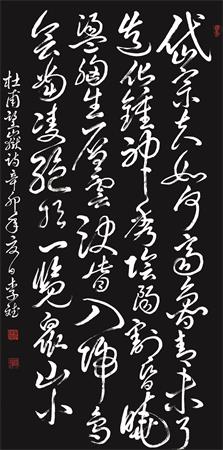 岱宗夫如何齊魯青未了
造化鍾神秀陰陽割昏曉
盪胸生層雲決眥入歸鳥
會當凌絕頂一覽眾山小
杜甫望嶽詩辛卯年夏日李